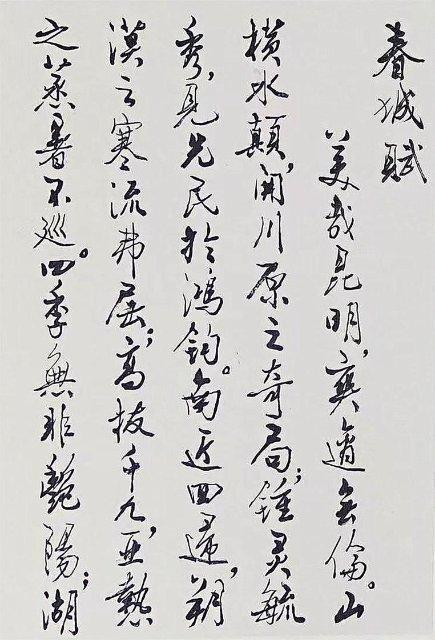 春城賦
美哉昆明，爽適無倫。山
橫水顛，開川原之奇局；鍾灵毓
秀，見先民於鴻鈞。南近回歸，朔
漠之寒流弗屆；高拔千九，亞熱
之蒸暑不巡。四季無非豔陽；湖